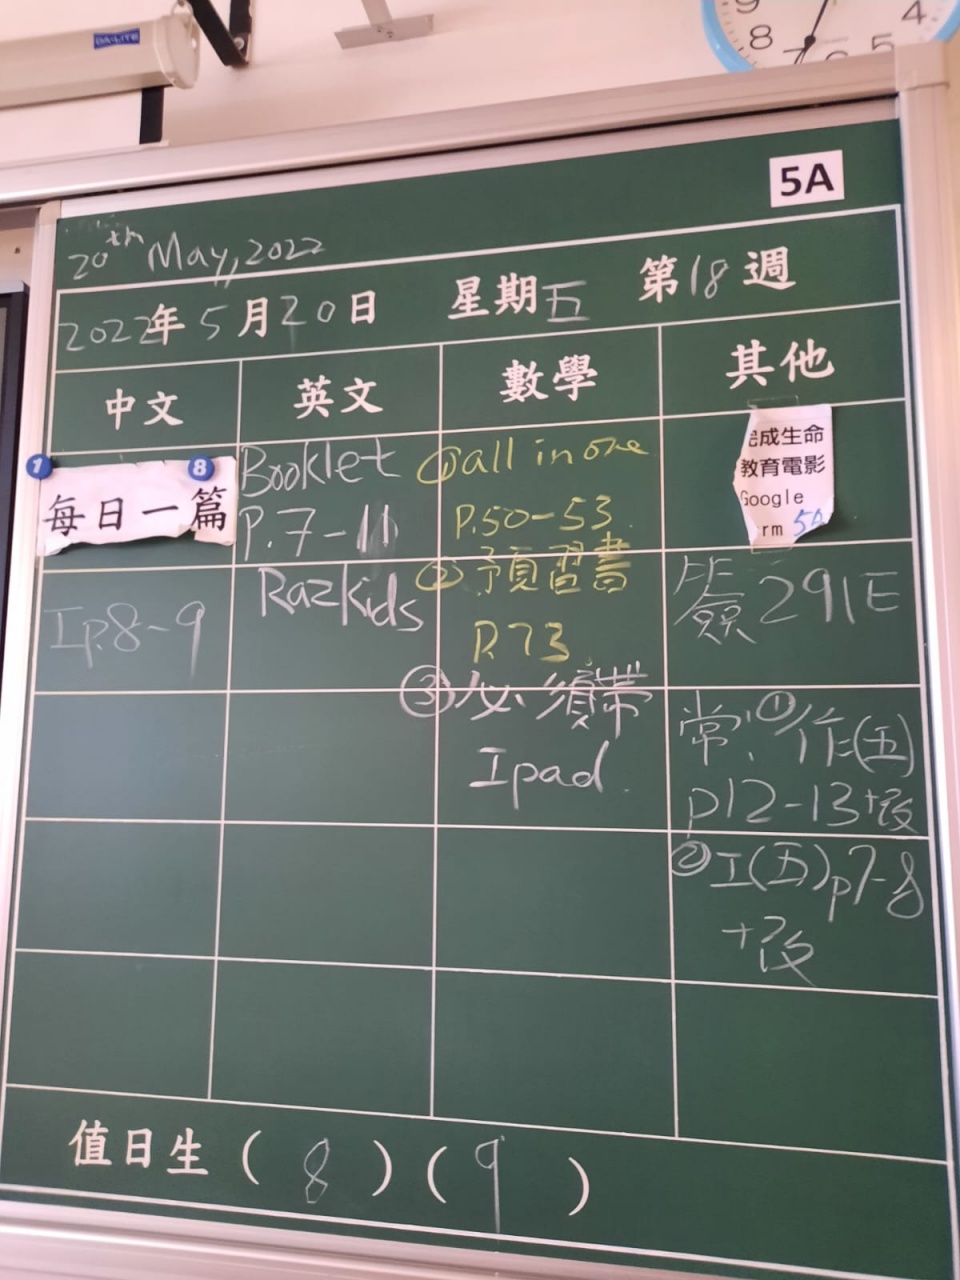 DA-LITE
9 4
8 7 6 5
5A
20th May, 2022
2022年5月20日 星期五 第18週
中文 英文 數學 其他
1 8
每日一篇
I p.8-9
Booklet
P.7-11
Razkids
①all in one
P.50-53
②預習書
P.73
③必須帶
Ipad
完成生命
教育電影
Google
rm 5A
簽291E
常:①作(五)
p12-13+改
②工(五)p7-8
+改
值日生(8)(9)